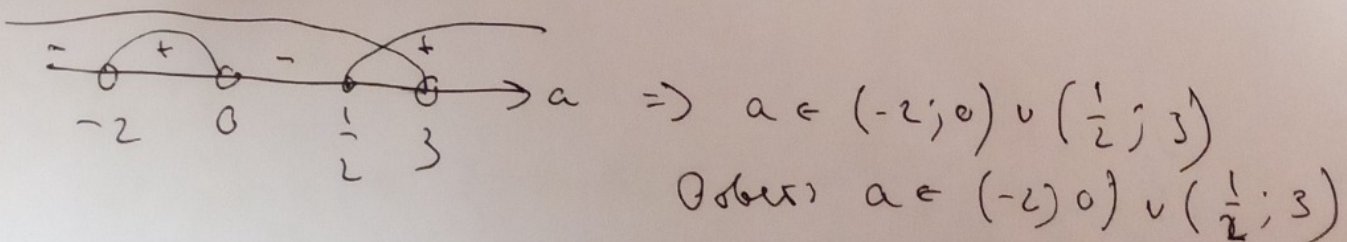 - + - +
-2 0 1/2 3 a => a ∈ (-2; 0) ∪ (1/2; 3)
Ответ: a ∈ (-2; 0) ∪ (1/2; 3)